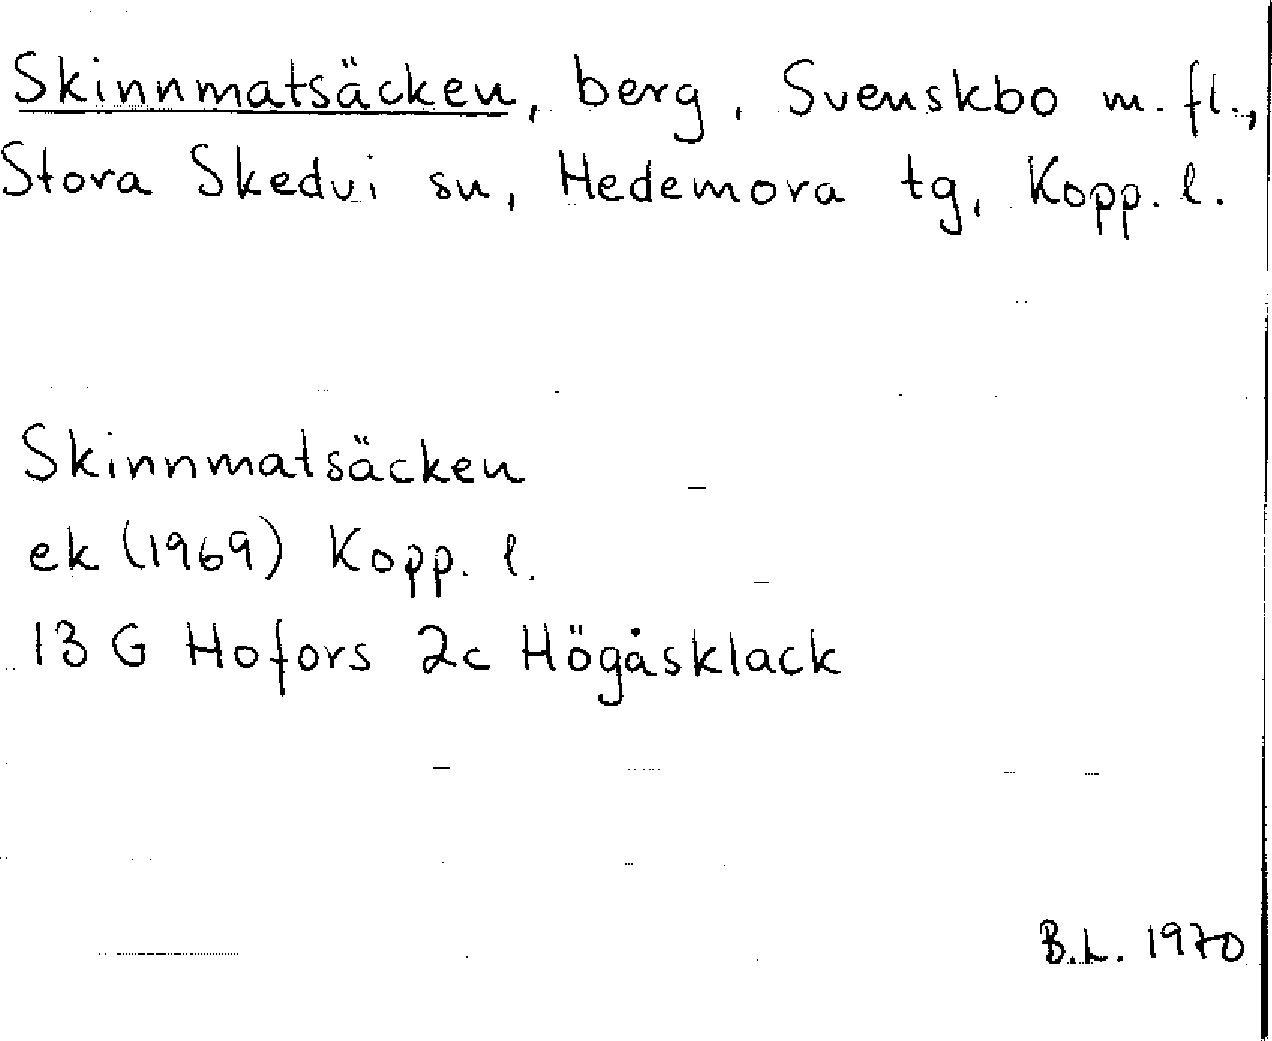 Skinnmatsäcken, berg, Svenskbo m. fl.,
Stora Skedvi sn, Hedemora tg, Kopp. l.
Skinnmatsäcken
ek (1969) Kopp. l.
13 G Hofors 2c Högåsklack
B.L. 1970